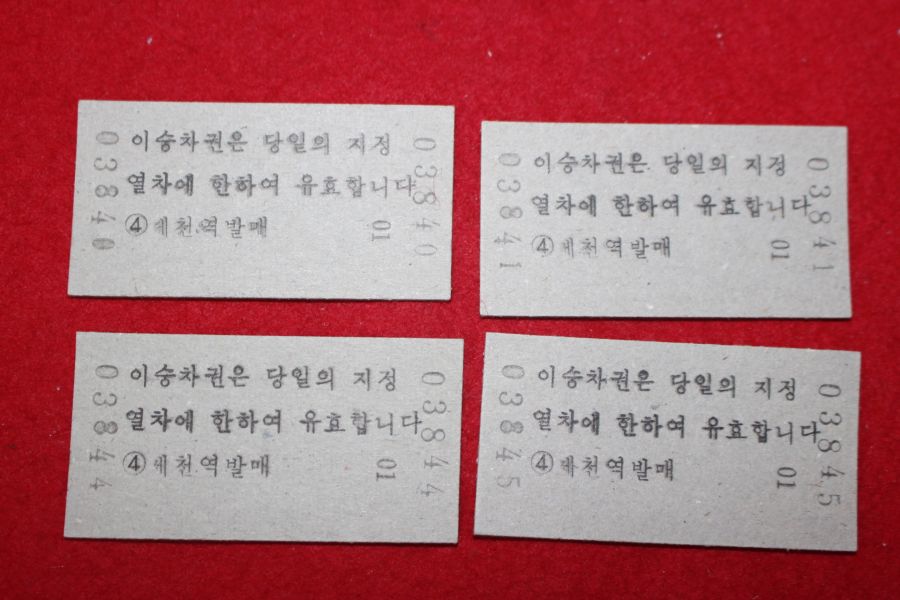 03840
이승차권은 당일의 지정
열차에 한하여 유효합니다
④ 제천역발매 01
03840
03841
이승차권은 당일의 지정
열차에 한하여 유효합니다
④ 제천역발매 01
03841
03844
이승차권은 당일의 지정
열차에 한하여 유효합니다
④ 제천역발매 01
03844
03845
이승차권은 당일의 지정
열차에 한하여 유효합니다
④ 제천역발매 01
03845